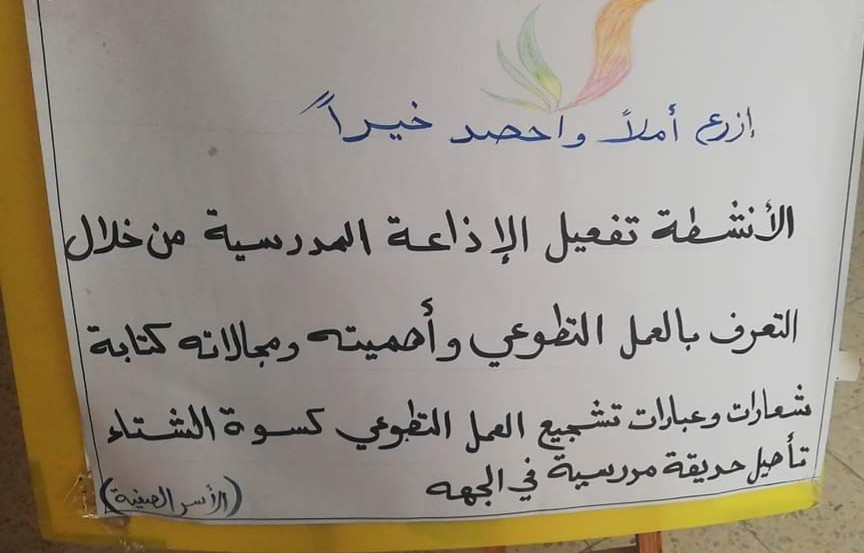 إزرع أملاً واحصد خيراً
الأنشطة تفعيل الإذاعة المدرسية من خلال
التعرف بالعمل التطوعي وأهميته ومجالاته كتابة
شعارات وعبارات تشجيع العمل التطوعي كسوة الشتاء
تأهيل حديقة مدرسية في الجهه
(الأسر الصفية)